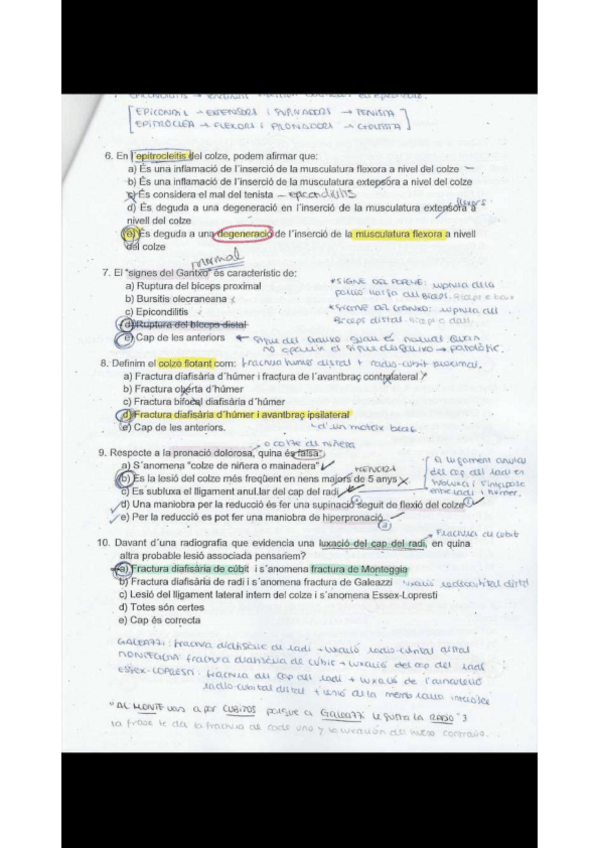 [EPICONAL → EXTENSORS I SUPINADORS → TENISTA
EPITRÒCLEA → FLEXORS I PRONADORS → GOLFISTA]
6. En l´epitrocleitis del colze, podem afirmar que:
a) És una inflamació de l´inserció de la musculatura flexora a nivel del colze
b) És una inflamació de l´inserció de la musculatura extensora a nivel del colze
c) És considera el mal del tenista – epicondilitis
flexors
d) És deguda a una degeneració en l´inserció de la musculatura extensora a
nivell del colze
e) És deguda a una degeneració de l´inserció de la musculatura flexora a nivell
del colze
normal
7. El “signes del Gantxo” és característic de:
a) Ruptura del bíceps proximal
b) Bursitis olecraneana
c) Epicondilitis
d) Ruptura del bíceps distal
e) Cap de les anteriors
*SIGNE DEL POPEYE: ruptura de la
porció llarga del Bíceps.
*SIGNE DEL GANXO: ruptura del
Bíceps distal.
← signe del Ganxo
8. Definim el colze flotant com: fractura húmer distal + radi-cúbit proximal.
a) Fractura diafisària d´húmer i fractura de l´avantbraç contralateral
b) Fractura oberta d´húmer
c) Fractura bifocal diafisària d´húmer
d) Fractura diafisària d´húmer i avantbraç ipsilateral
e) Cap de les anteriors.
d'un mateix braç.
o colze de niñera
9. Respecte a la pronació dolorosa, quina és falsa:
a) S´anomena “colze de niñera o mainadera”
b) És la lesió del colze més freqüent en nens majors de 5 anys
c) És subluxa el lligament anul.lar del cap del radi
d) Una maniobra per la reducció és fer una supinació seguit de flexió del colze
e) Per la reducció es pot fer una maniobra de hiperpronació
El lligament anular
del cap del radi
entre radi i húmer.
Fractura de cúbit
10. Davant d´una radiografia que evidencia una luxació del cap del radi, en quina
altra probable lesió associada pensaríem?
a) Fractura diafisària de cúbit i s´anomena fractura de Monteggia
b) Fractura diafisària de radi i s´anomena fractura de Galeazzi
luxació radiocubital distal
c) Lesió del lligament lateral intern del colze i s´anomena Essex-Lopresti
d) Totes són certes
e) Cap és correcta
GALEAZZI: fractura diafisària de radi + luxació radio-cubital distal
MONTEGGIA: fractura diafisària de cúbit + luxació del cap del radi
ESSEX-LOPRESTI: fractura del cap del radi + luxació de l'articulació
radio-cubital distal + lesió de la membrana interòssea
"AL MONTE vas a por CUBITOS porque a GALEAZZI le gusta la RADIO"
la frase te da la fractura de cada una y la luxación del hueso contrario.